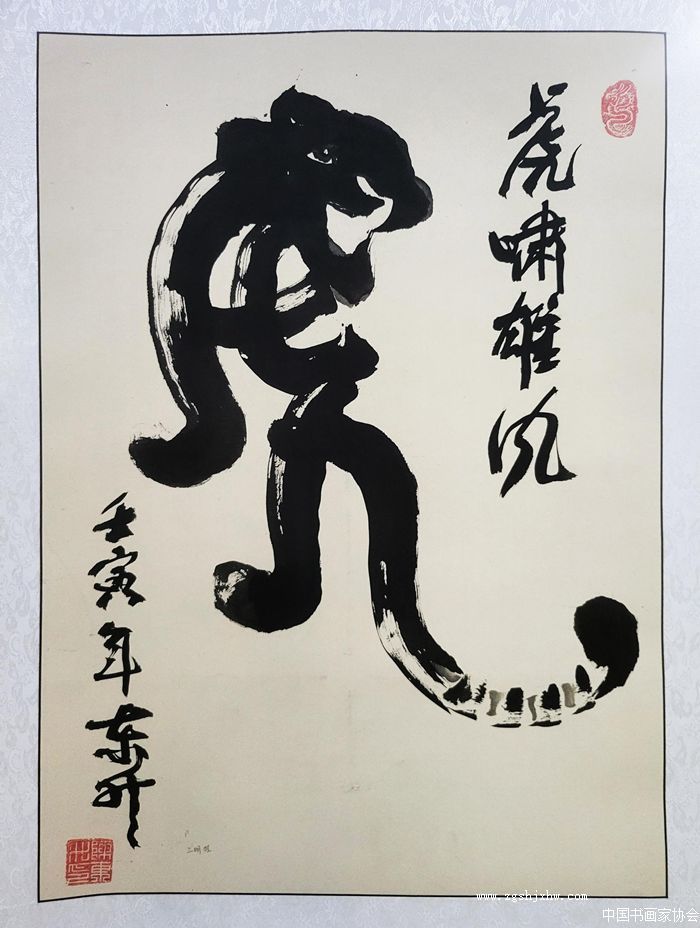 虎啸雄风
虎
壬寅年东升
www.zgshjxhw.com
中国书画家协会